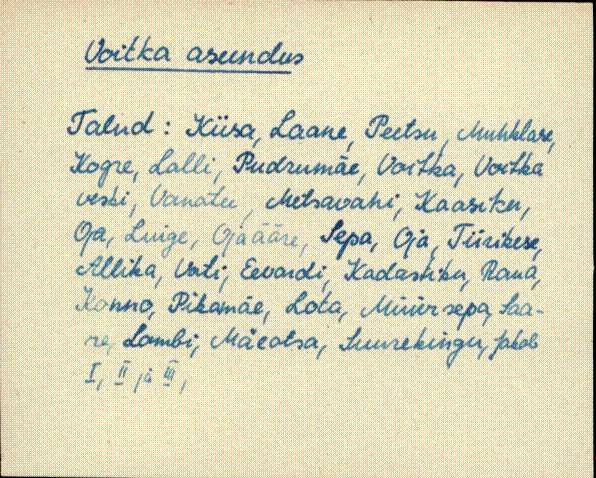 Voitka asundus
Talud: Kiisa, Laane, Peetsu, Muhklase,
Kogre, Lalli, Pudrumäe, Voitka, Voitka
veski, Vanatu, Metsavahi, Kaasiku,
Oja, Luige, Ojaääre, Sepa, Oja, Tiirikese,
Allika, Vati, Eevardi, Kadastiku, Rana,
Konno, Pikamäe, Lota, Müürsepa, Saa-
re, Lombi, Mäeotsa, Suurekingu, Jakob
I, II ja III,